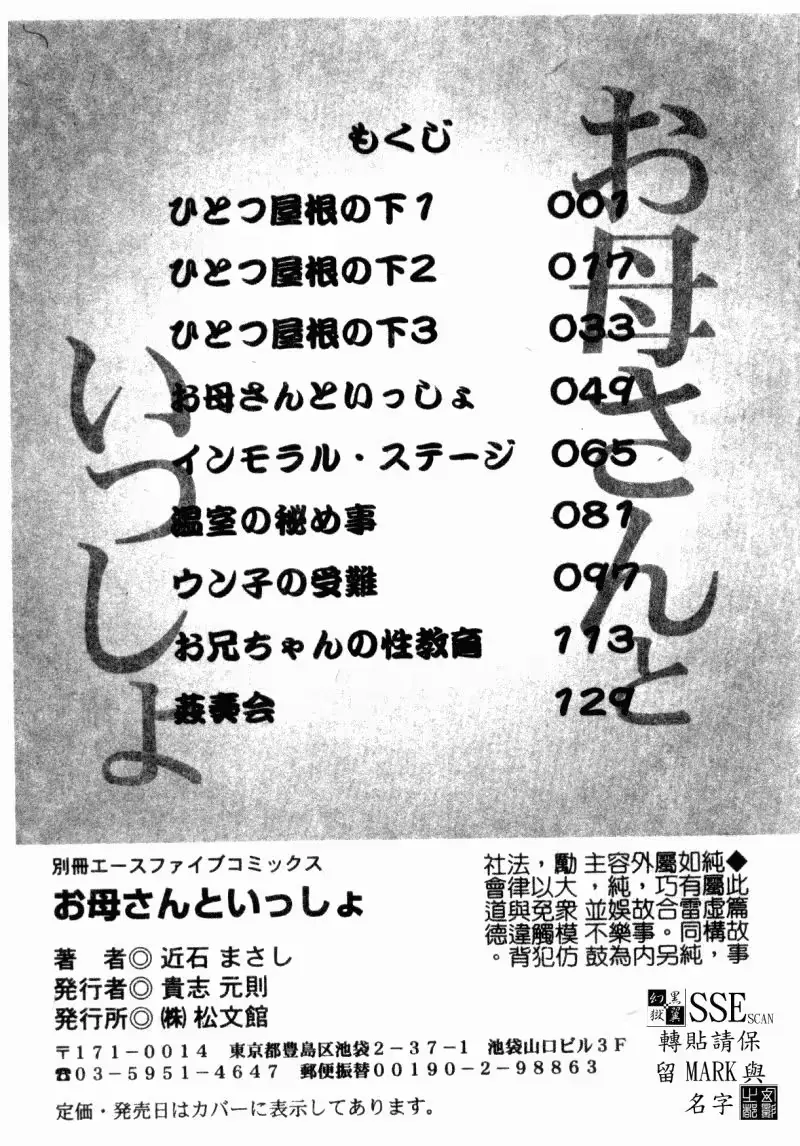 お母さんと
いっしょ
もくじ
ひとつ屋根の下1 001
ひとつ屋根の下2 017
ひとつ屋根の下3 033
お母さんといっしょ 049
インモラル・ステージ 065
温室の秘め事 081
ウン子の受難 097
お兄ちゃんの性教育 113
姦奏会 129
別冊エースファイブコミックス
お母さんといっしょ
著 者◎ 近石 まさし
発行者◎ 貴志 元則
発行所◎ ㈱ 松文館
〒171-0014 東京都豊島区池袋2-37-1 池袋山口ビル3F
☎03-5951-4647 郵便振替00190-2-98863
定価・発売日はカバーに表示してあります。
◆此篇故事
純屬虛構，
如有雷同純
屬巧合。另
外，故事內
容純娛樂為
主，並不鼓
勵大眾模仿
，以免觸犯
法律與違背
社會道德。
幻獄 黑翼 SSE SCAN
轉貼請保
留 MARK 與
名字